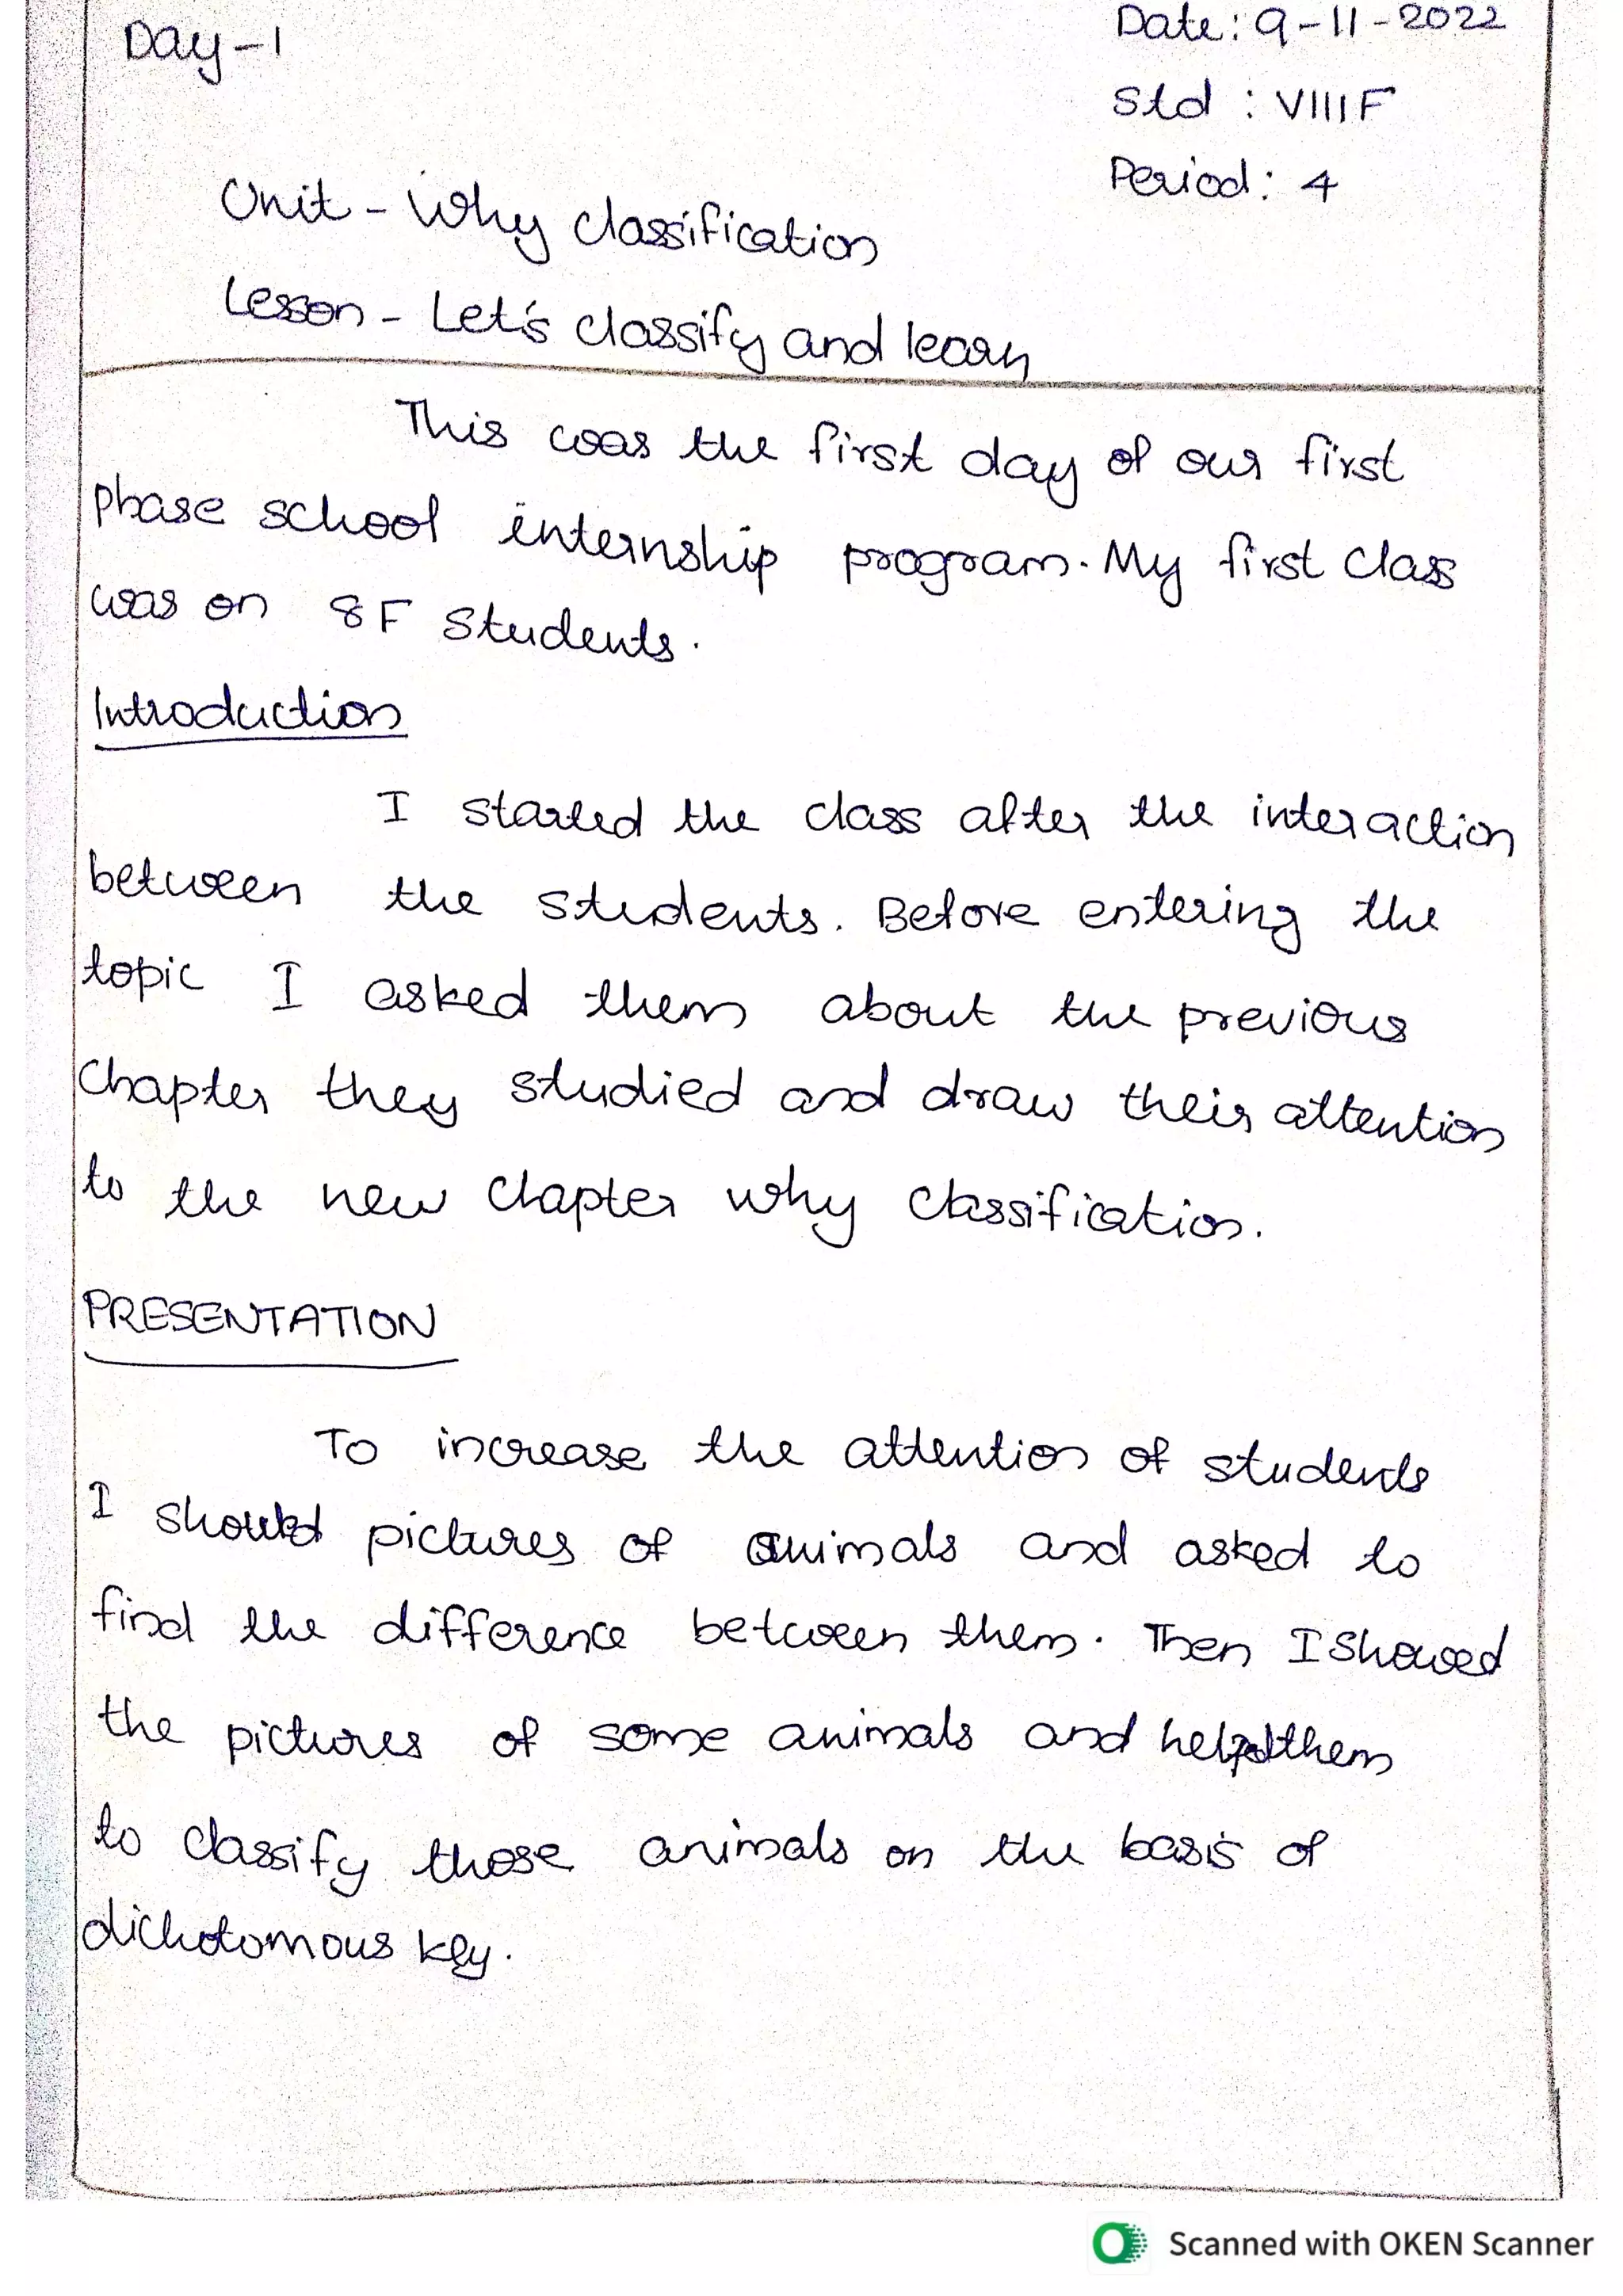 Day-1
Date: 9-11-2022
Std : VIII F
Period: 4
Unit - Why classification
Lesson - Let's classify and learn
This was the first day of our first
phase school internship program. My first class
was on 8F students.
Introduction
I started the class after the interaction
between the students. Before entering the
topic I asked them about the previous
chapter they studied and draw their attention
to the new chapter why classification.
PRESENTATION
To increase the attention of students
I pictures of animals and asked to
find the difference between them. Then I showed
the pictures of some animals and helped them
to classify those animals on the basis of
dichotomous key.
Scanned with OKEN Scanner